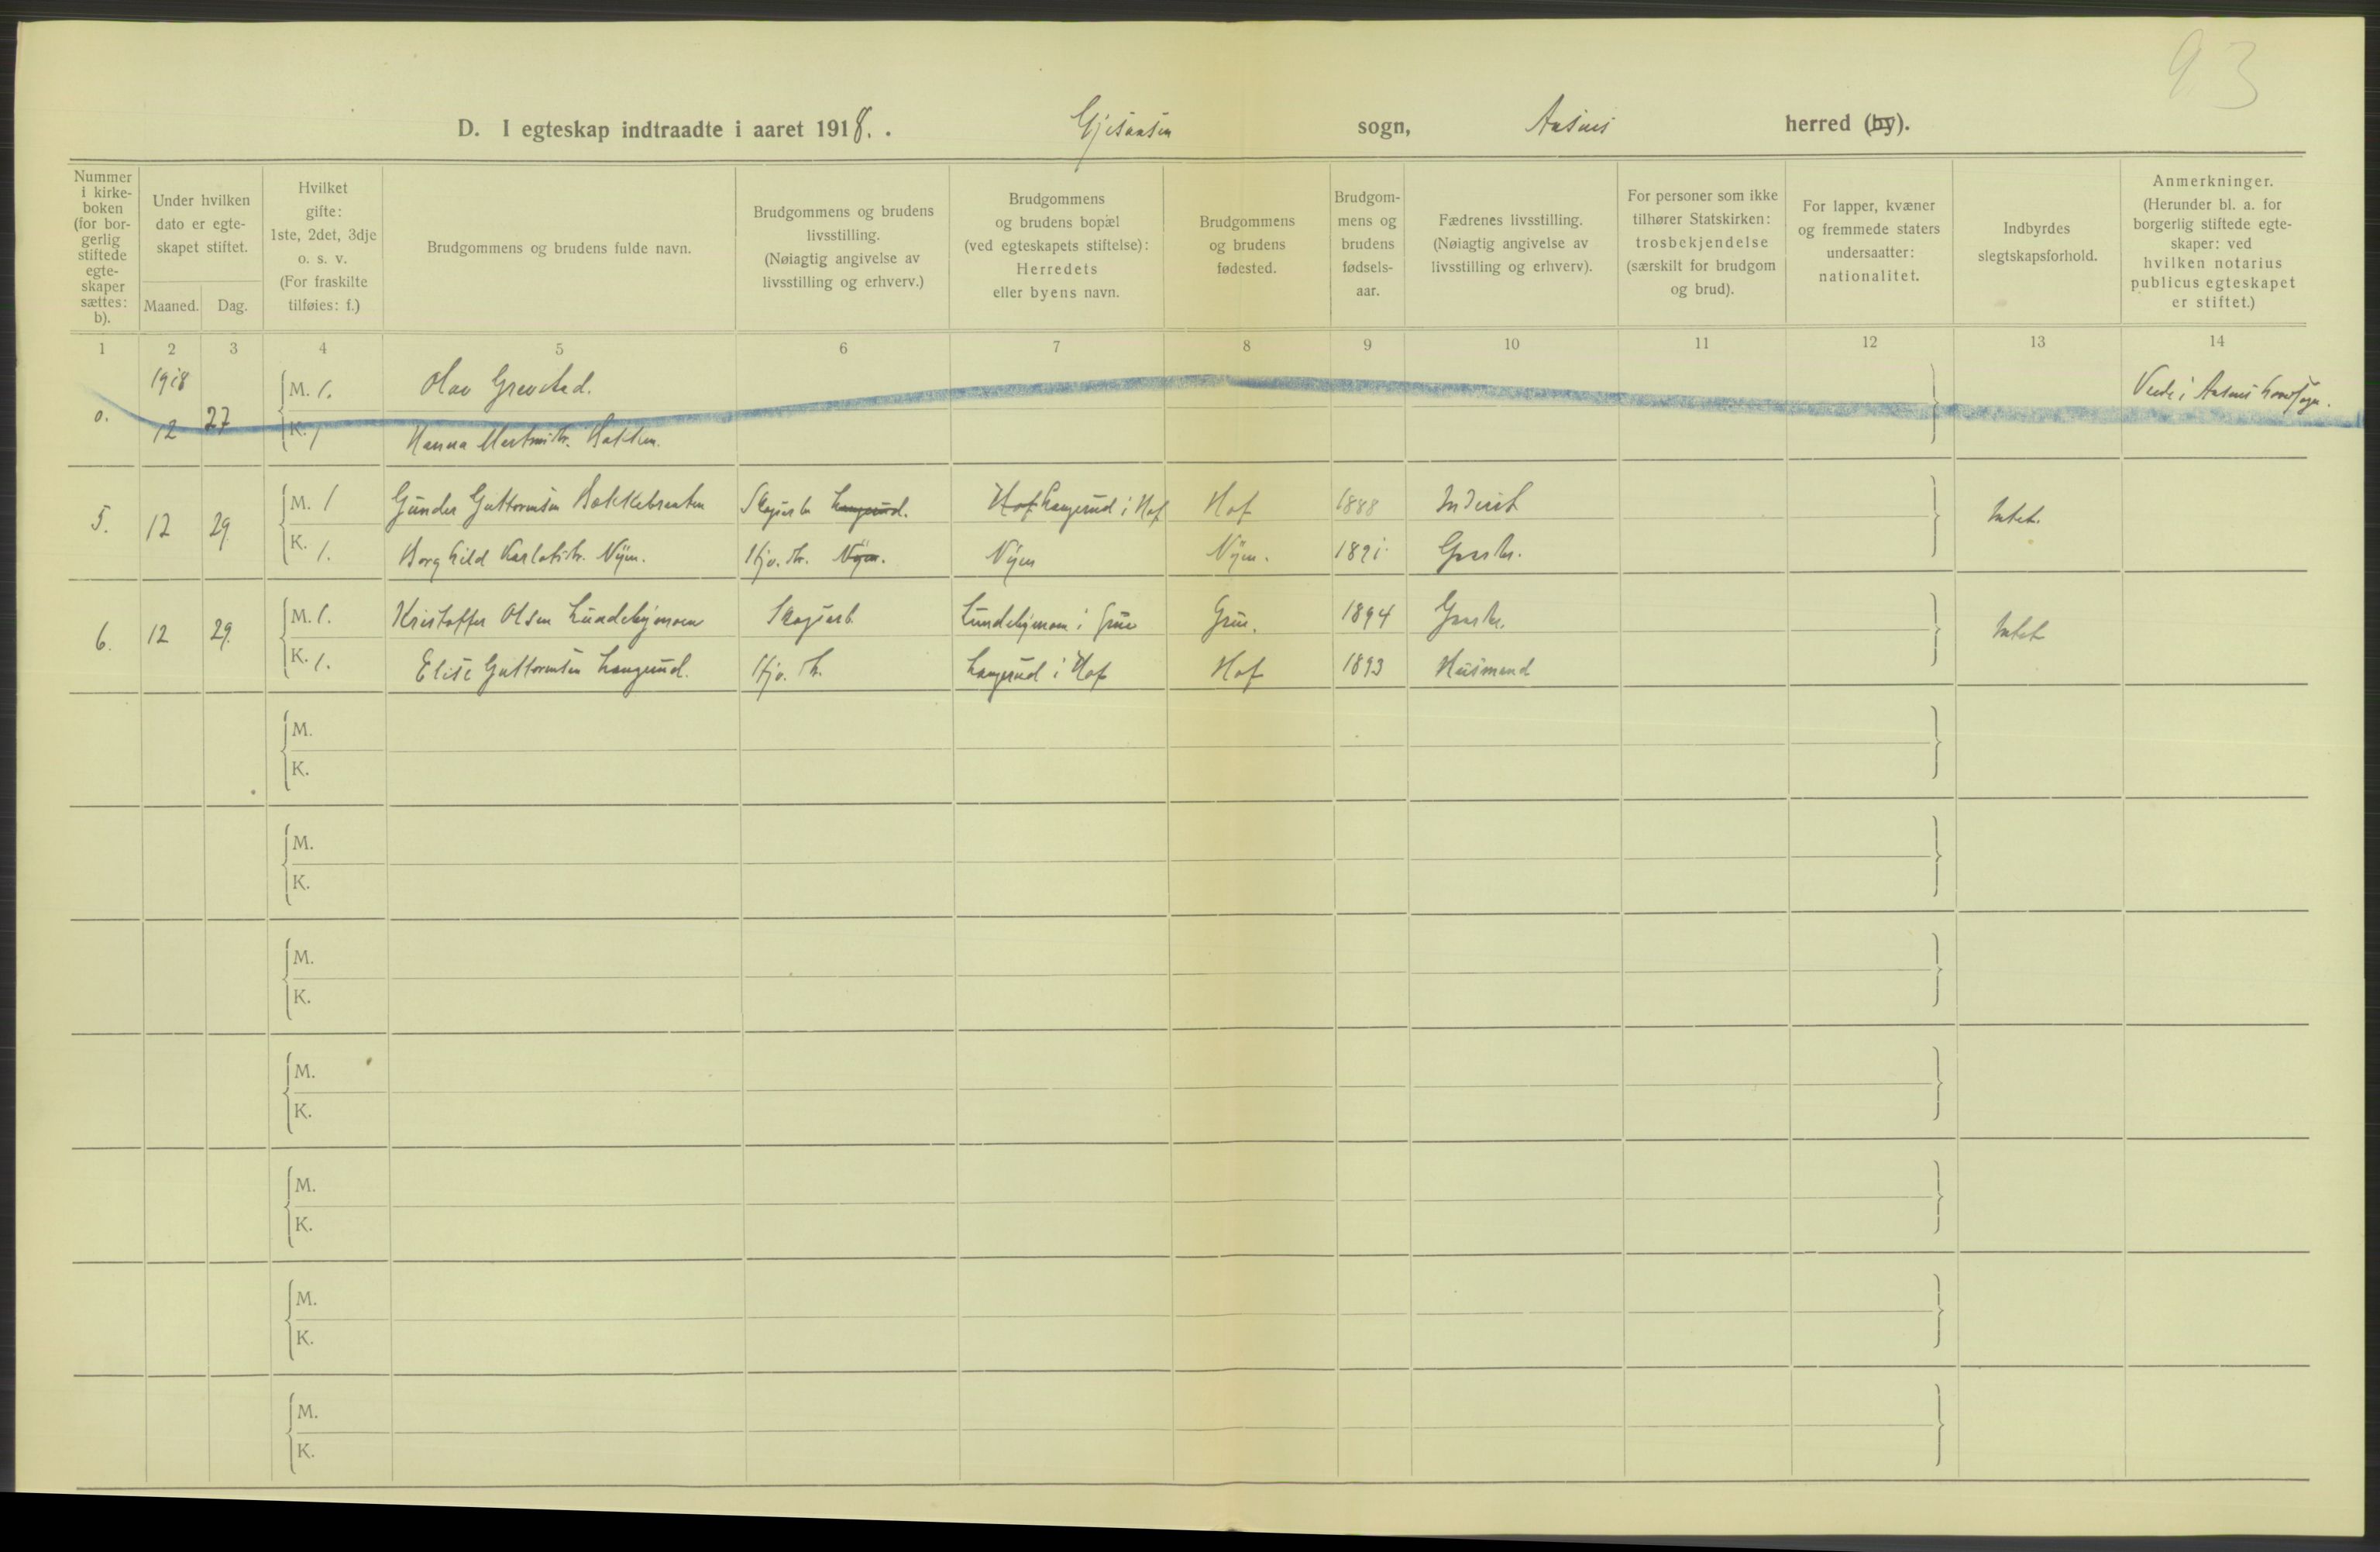 93
D. I egteskap indtraadte i aaret 1918. . Gjesaasen sogn, Aasnes herred (by).
Nummer i kirkeboken (for borgerlig stiftede egteskaper sættes: b).
Under hvilken dato er egteskapet stiftet.
Maaned. Dag.
Hvilket gifte: 1ste, 2det, 3dje o. s. v. (For fraskilte tilføies: f.)
Brudgommens og brudens fulde navn.
Brudgommens og brudens livsstilling. (Nøiagtig angivelse av livsstilling og erhverv.)
Brudgommens og brudens bopæl (ved egteskapets stiftelse): Herredets eller byens navn.
Brudgommens og brudens fødested.
Brudgommens og brudens fødselsaar.
Fædrenes livsstilling. (Nøiagtig angivelse av livsstilling og erhverv).
For personer som ikke tilhører Statskirken: trosbekjendelse (særskilt for brudgom og brud).
For lapper, kvæner og fremmede staters undersaatter: nationalitet.
Indbyrdes slegtskapsforhold.
Anmerkninger. (Herunder bl. a. for borgerlig stiftede egteskaper: ved hvilken notarius publicus egteskapet er stiftet.)
1 2 3 4 5 6 7 8 9 10 11 12 13 14
1918
M. 1. Olav Grevsted. i Aasnes hovedsogn.
0. 12 27
K. 1 Hanna Martinsdtr. Bakken.
M. 1 Gunder Guttormsen Bakkebraaten Skogsarb Langerud. Hof Langerud i Hof Hof 1888 Inderst
5. 12 29 Intet.
K. 1. Borghild Karlotsdtr. Nyen. Hjv. dtr. Nyen. Nyen Nyen. 1891 Gaardbr.
M. 1. Kristoffer Olsen Lundebymoen Skogsarb Lundebymoen i Grue Grue. 1894 Gaardbr.
6. 12 29. Intet
K. 1. Elise Guttormsen Langerud. Hjv. dtr. Langerud i Hof Hof 1893 Husmand
M.
K.
M.
K.
M.
K.
M.
K.
M.
K.
M.
K.
M.
K.